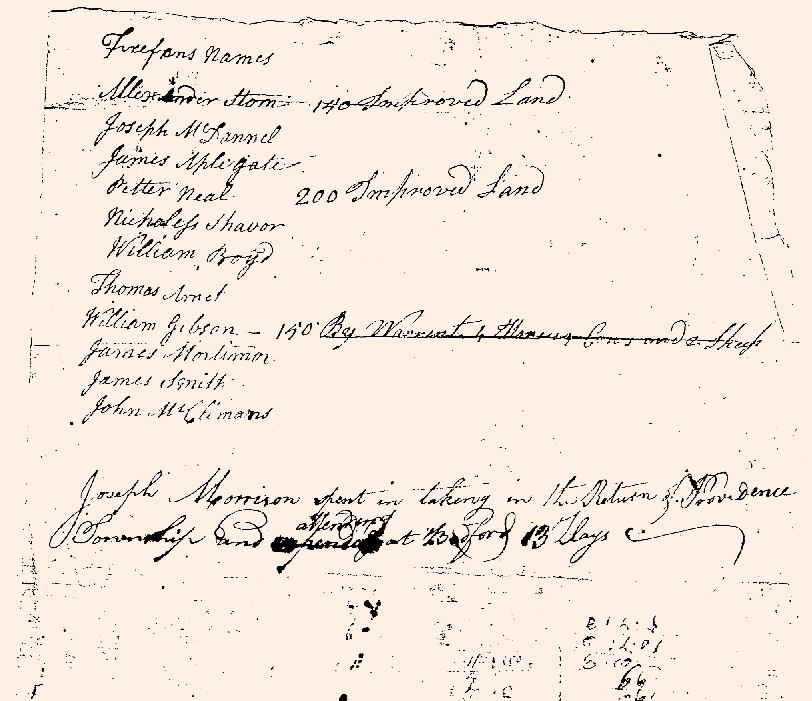 Freemans Names
Allexander Stom - 140 Improved Land
Joseph McDannel
James Aplegate
Petter Neal 200 Improved Land
Nicholess Shavor
William Boyd
Thomas
William Gibson - 150 By Warrent Cows and 2 Sheep
James Mortimor
James Smith
John McClimans
Joseph Morrison spent in taking in the Return of Providence
attending
Township and at Bedford 13 Days